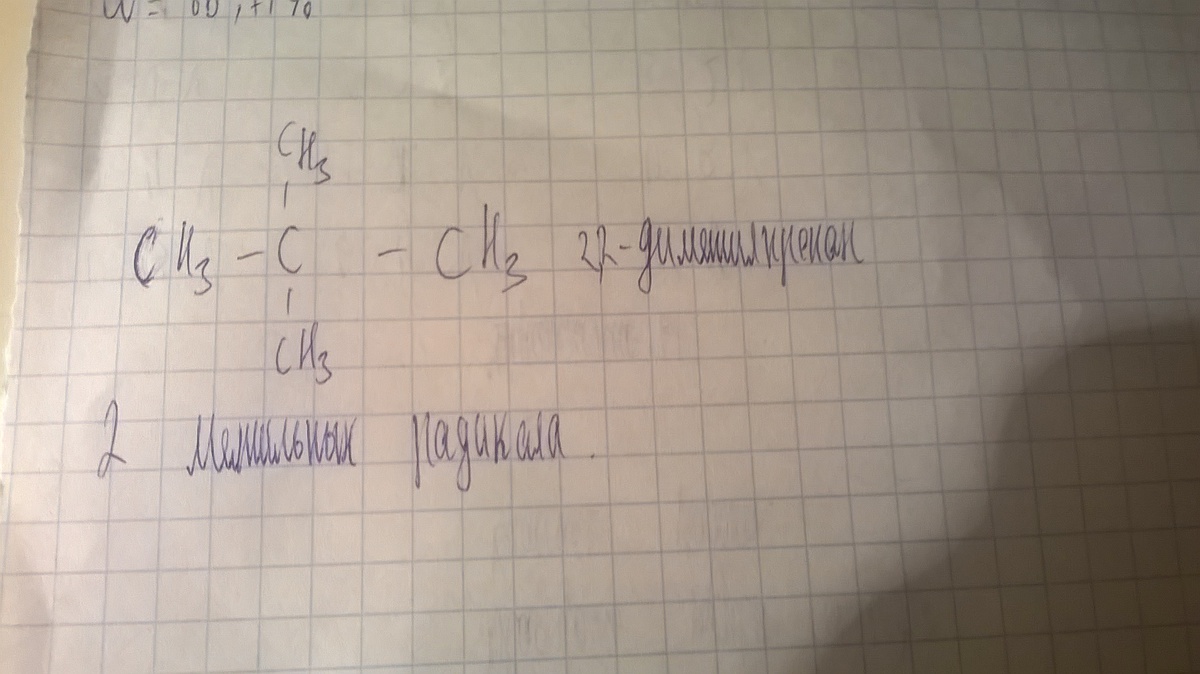 CH3
CH3 - C - CH3 2,2-диметилпропан
CH3
2 метильных радикала.